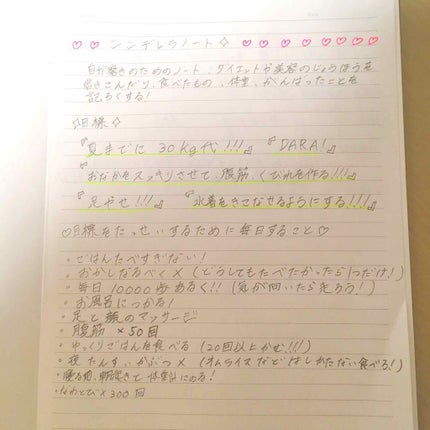 ♡♡ シンデレラノート ◇ ♡ ♡ ♡ ♡ ♡ ♡ ♡ ♡
自分磨きのためのノート、ダイエットや美容のじょうほうを
書きこんだり、食べたもの、体重、がんばったことを
記ろくする!
☆目標◇
『夏までに 30kg代!!!』 『DARA!』
『おなかをスッキリさせて、腹筋、くびれを作る!!!』
『足やせ!!!』 『水着をきこなせるようにする!!!』
♡目標をたっせいするために毎日すること♡
・ごはんたべすぎない!
・おかしなるべく×(どうしてもたべたかったら1つだけ!)
・毎日10000歩あるく!!(気が向いたら走ろう!)
・お風呂につかる!
・足と顔のマッサージ
・腹筋 ×50回
・ゆっくりごはんを食べる(20回以上かむ!!!)
・夜たんすいかぶつ×(オムライスなどはしかたない食べる!)
・寝る前、朝起きて体重計にのる!
・なわとび×300回